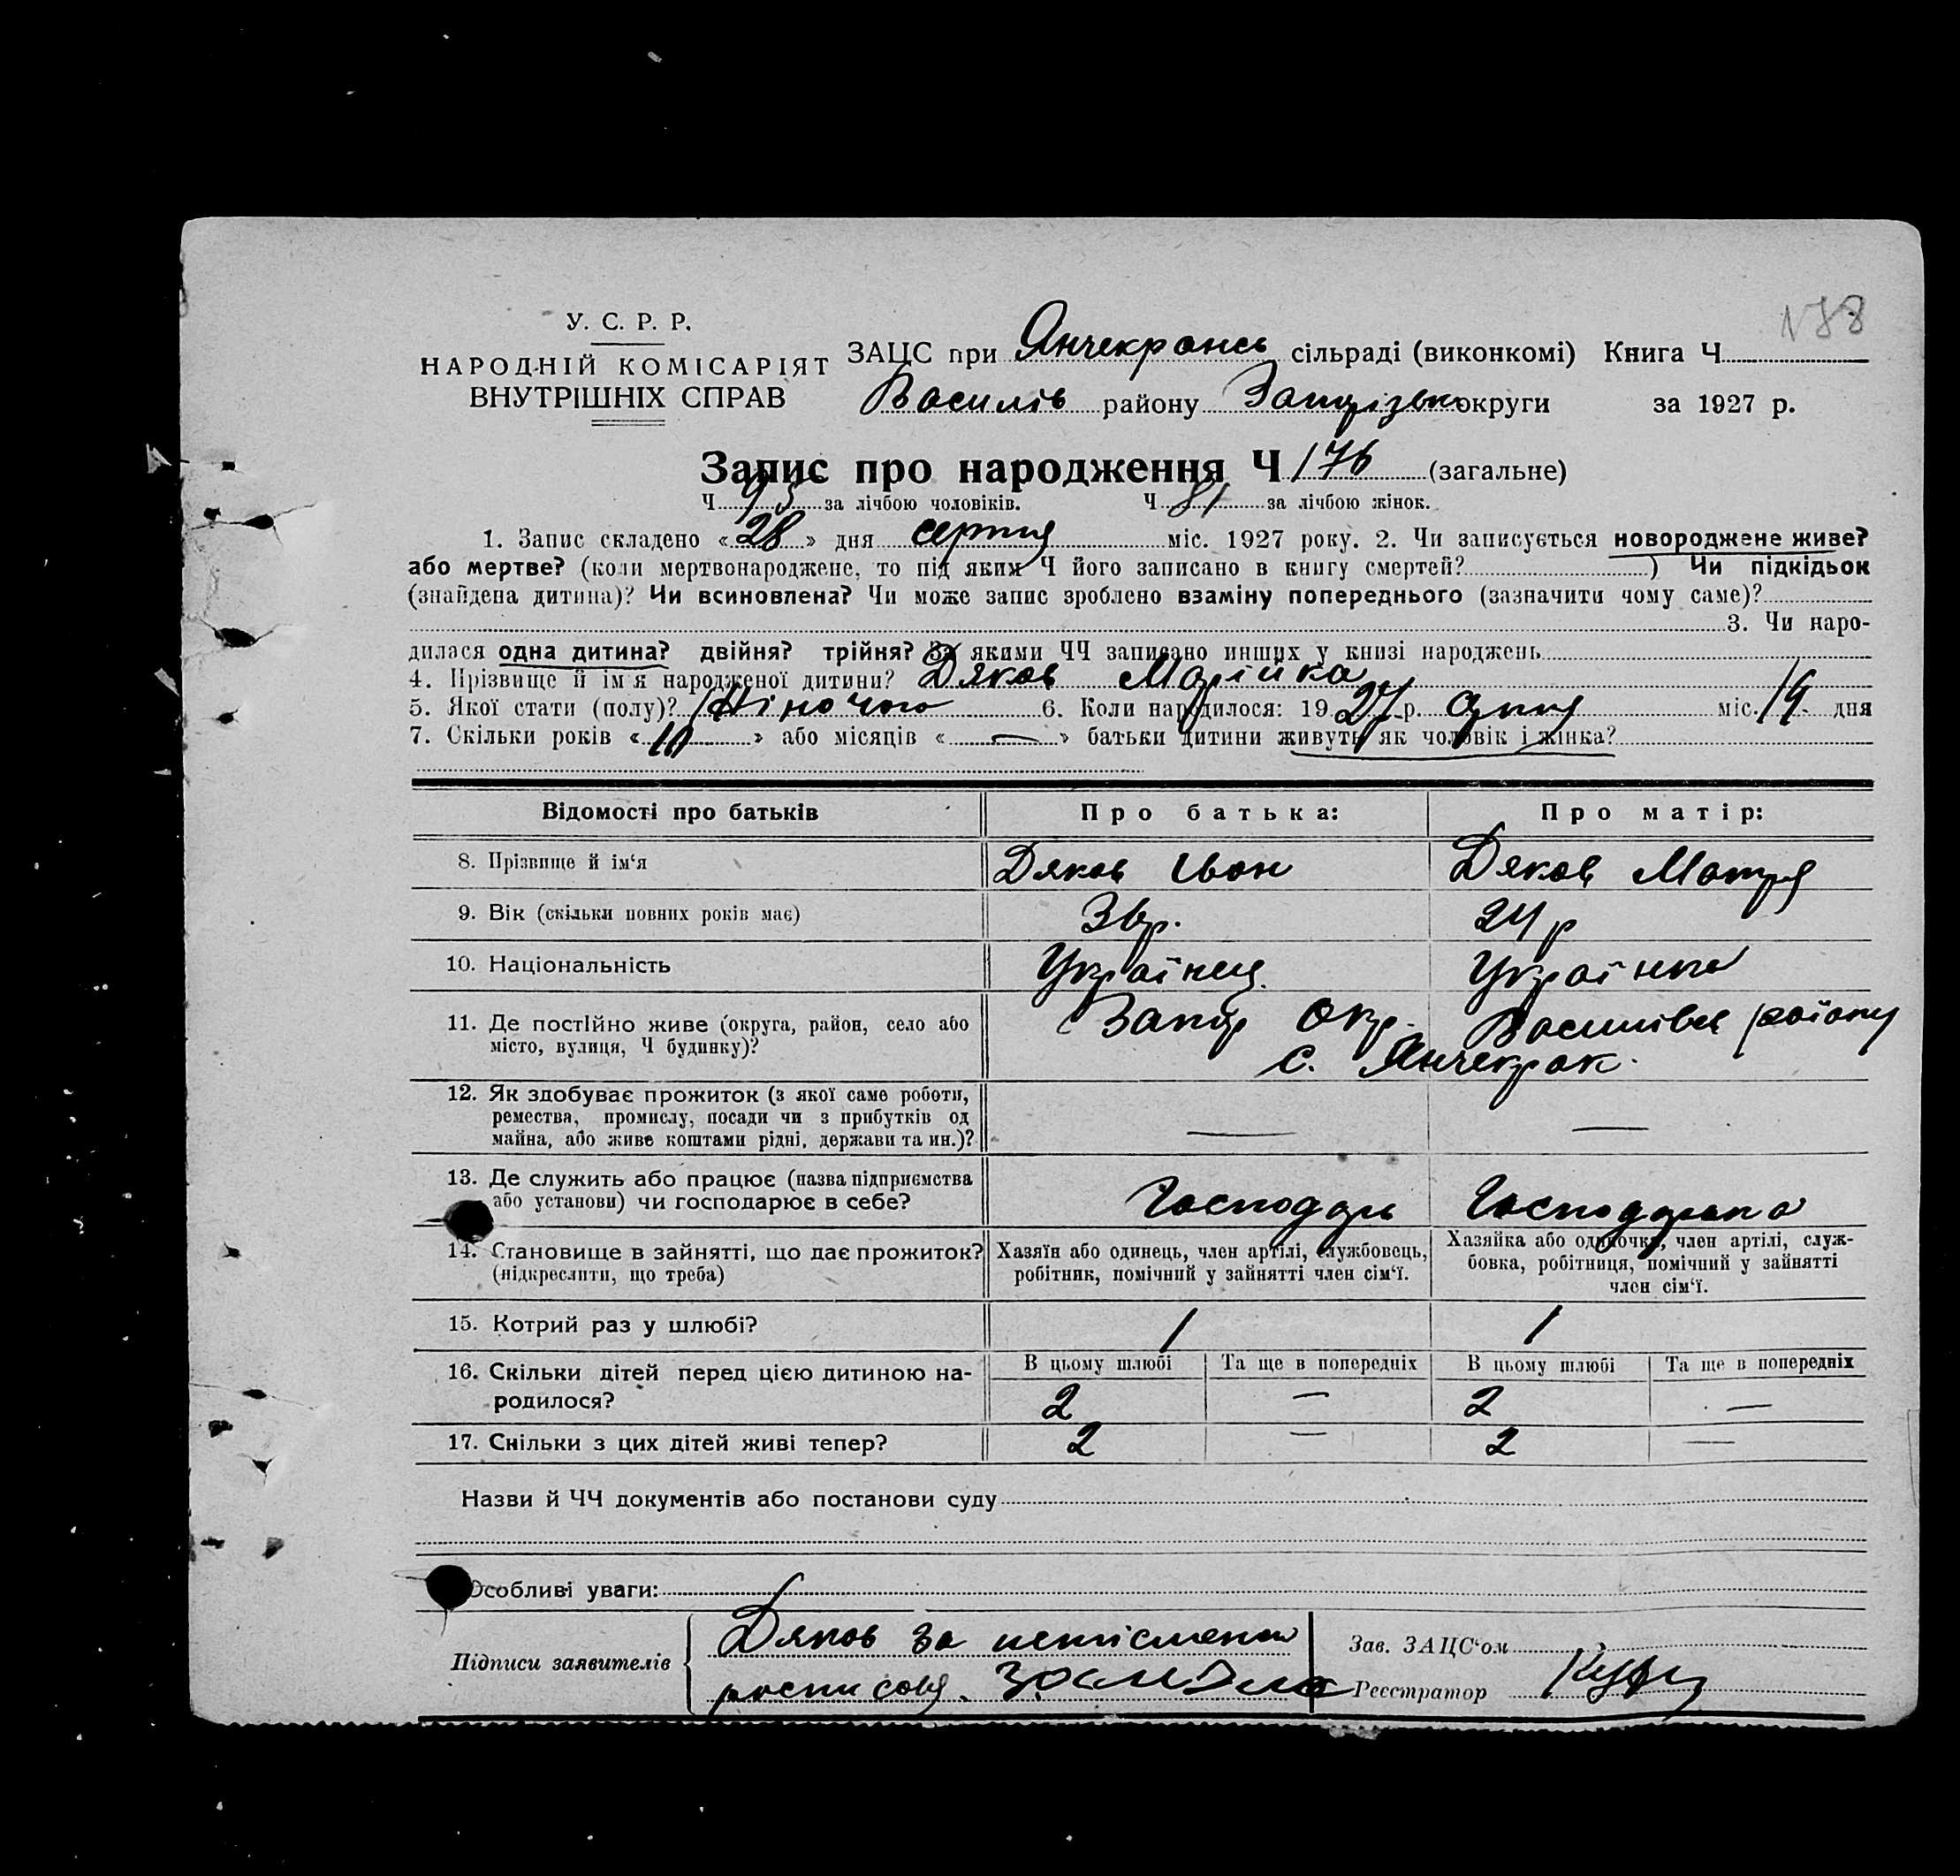 178
У. С. Р. Р.
НАРОДНІЙ КОМІСАРІЯТ
ВНУТРІШНІХ СПРАВ
ЗАЦС при Янчекрансь сільраді (виконкомі) Книга Ч
Василів району округи за 1927 р.
Запис про народження Ч 176 (загальне)
Ч 95 за лічбою чоловіків. Ч 81 за лічбою жінок.
1. Запис складено «28» дня серпня міс. 1927 року. 2. Чи записується новороджене живе?
або мертве? (коли мертвонароджене, то під яким Ч його записано в книгу смертей? ) Чи підкідьок
(знайдена дитина)? Чи всиновлена? Чи може запис зроблено взаміну попереднього (зазначити чому саме)?
3. Чи наро-
дилася одна дитина? двійня? трійня? За якими ЧЧ записано инших у книзі народжень
4. Прізвище й ім'я народженої дитини? Дяков Марійка
5. Якої стати (полу)? Жіночого 6. Коли народилося: 1927 р. міс. 19 дня
7. Скільки років «10» або місяців «—» батьки дитини живуть як чоловік і жінка?
Відомості про батьків Про батька: Про матір:
8. Прізвище й ім'я Дяков Іван Дяков Мотря
9. Вік (скільки повних років має) 36р. 24р
10. Національність Українец. Українка
11. Де постійно живе (округа, район, село або Запор Окр. Василівск району
місто, вулиця, Ч будинку)? с. Янчекрак.
12. Як здобуває прожиток (з якої саме роботи,
ремества, промислу, посади чи з прибутків од
майна, або живе коштами рідні, держави та ин.)? — —
13. Де служить або працює (назва підприємства
або установи) чи господарює в себе? Господарь Господарка
14. Становище в зайнятті, що дає прожиток? Хазяїн або одинець, член артілі, службовець, Хазяйка або одиночка, член артілі, служ-
(підкреслити, що треба) робітник, помічний у зайнятті член сім'ї. бовка, робітниця, помічний у зайнятті
член сім'ї.
15. Котрий раз у шлюбі? 1 1
16. Скільки дітей перед цією дитиною на- В цьому шлюбі Та ще в попередніх В цьому шлюбі Та ще в попередніх
родилося? 2 — 2 —
17. Скільки з цих дітей живі тепер? 2 — 2 —
Назви й ЧЧ документів або постанови суду
Особливі уваги:
Підписи заявителів Дяков за Зав. ЗАЦС'ом
Реєстратор